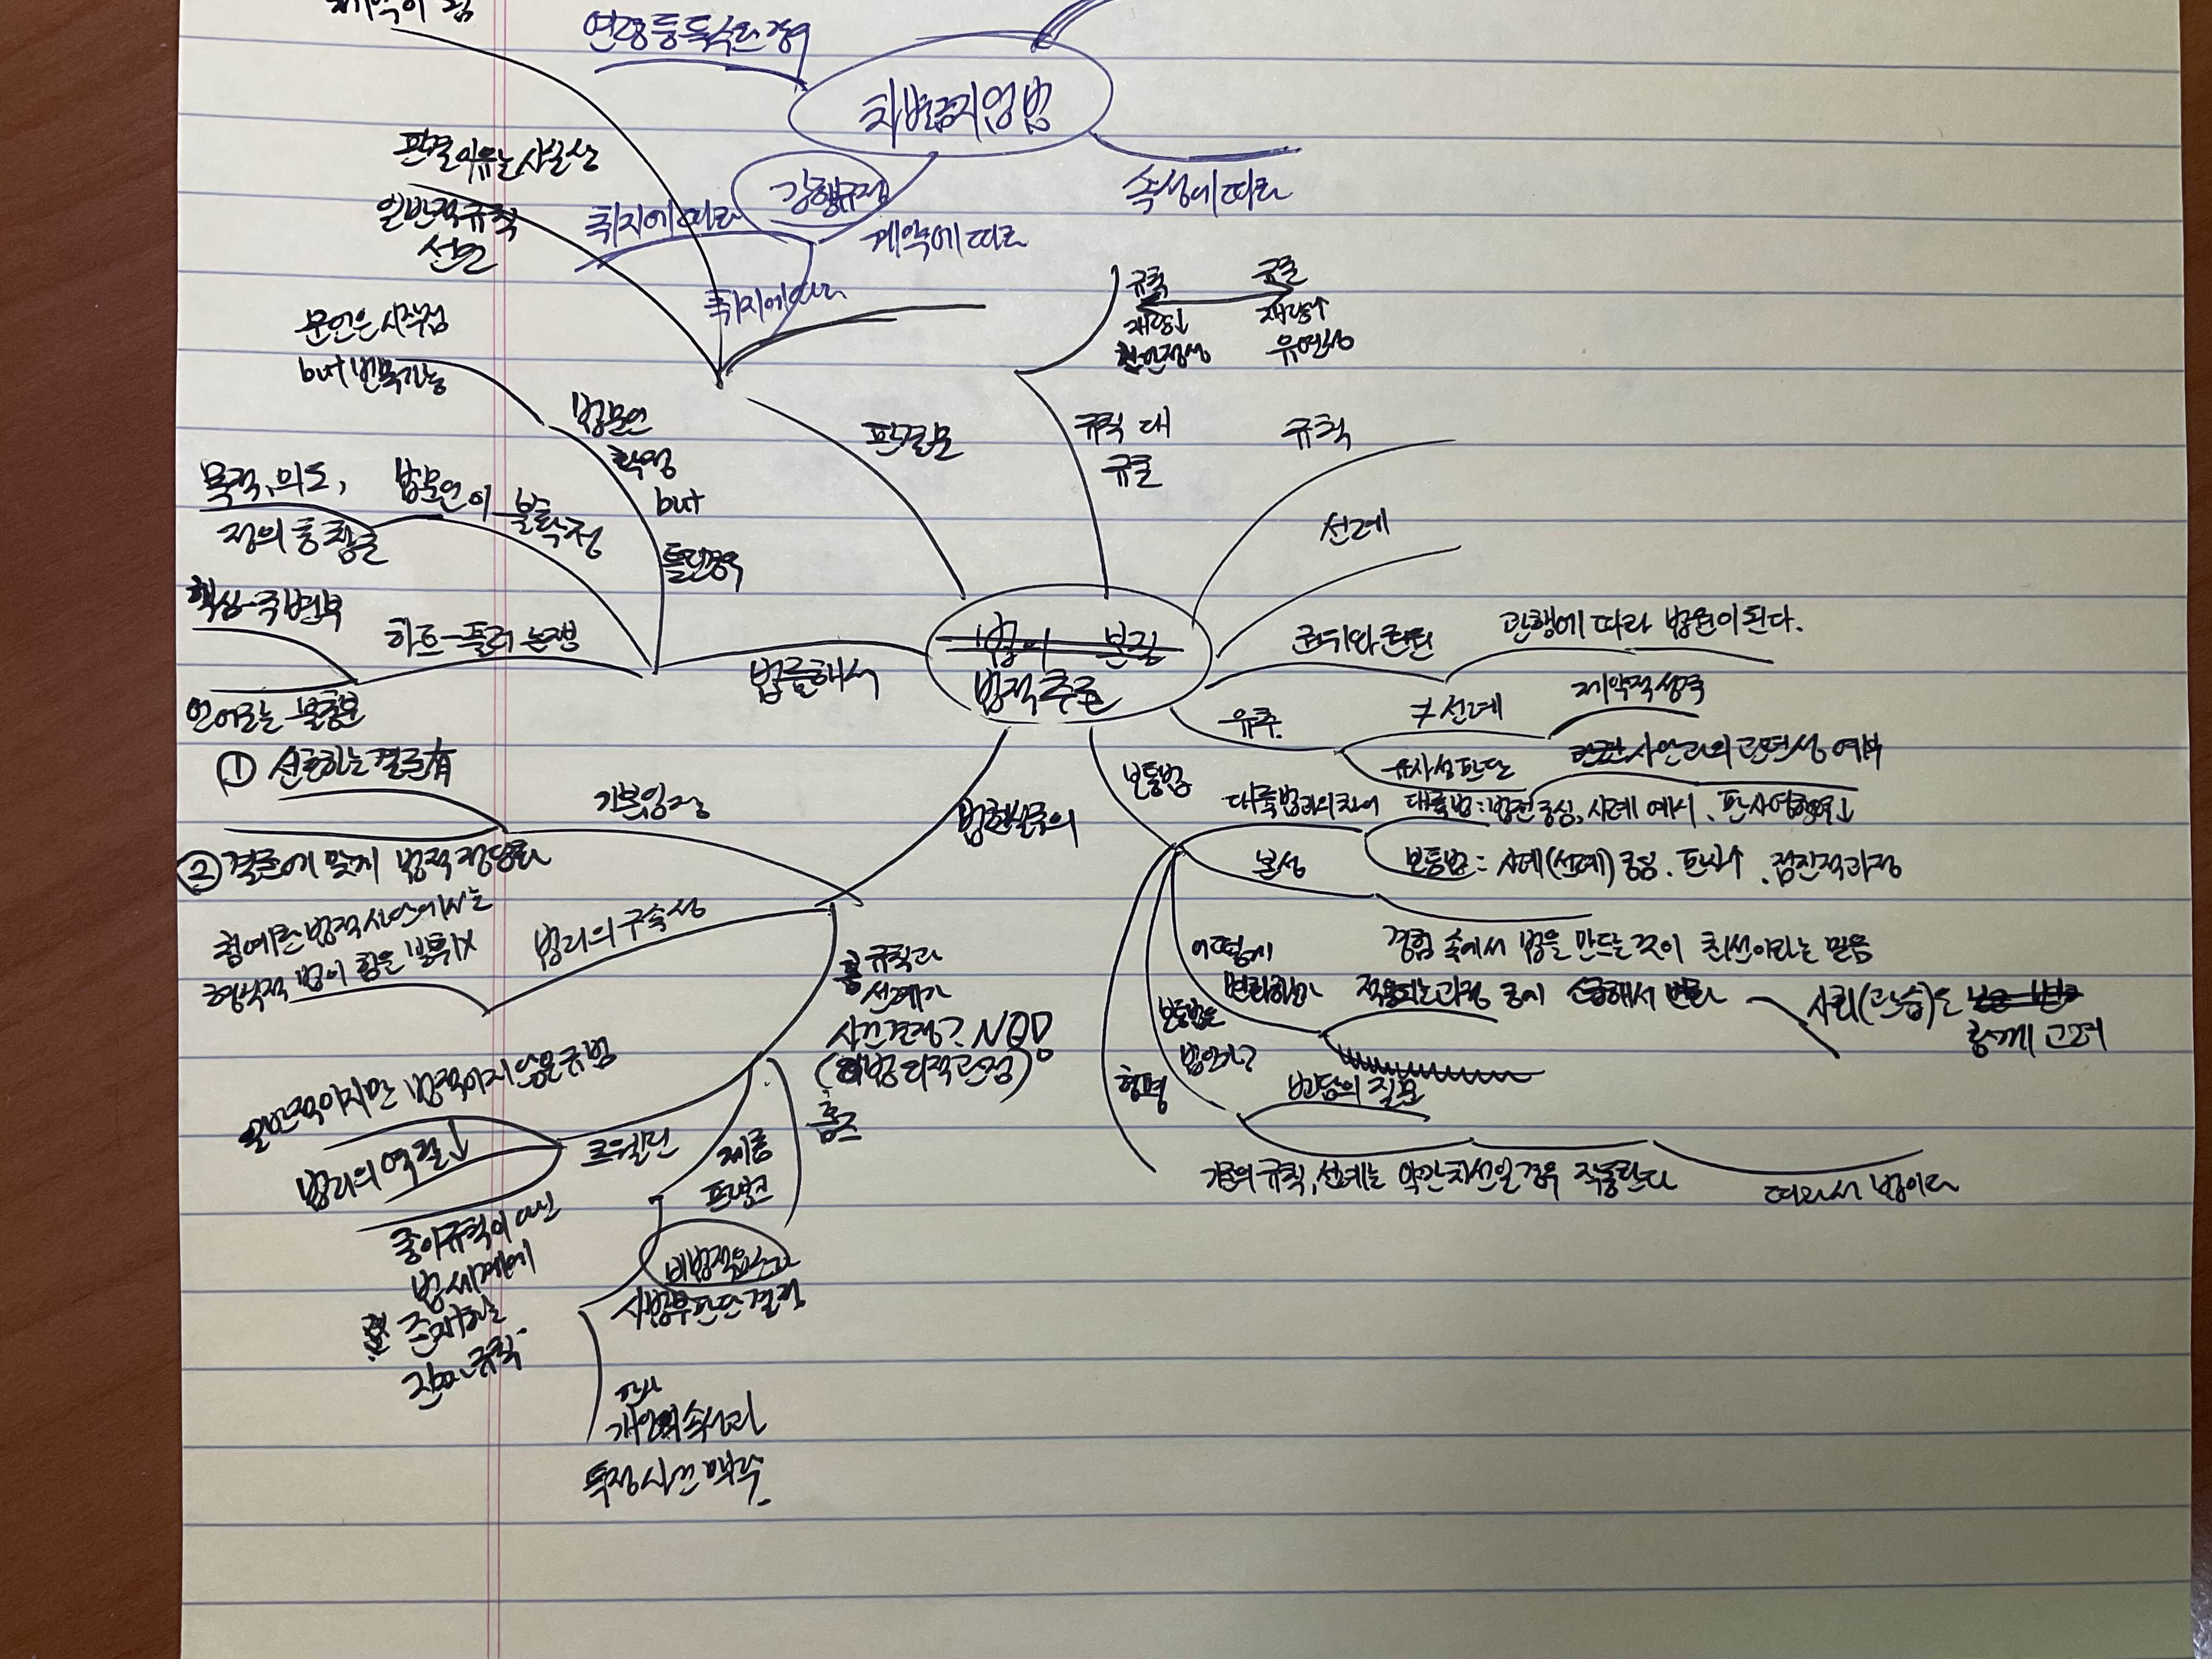 제약이 됨
연령 등 특수한 경우
차별금지의 법
강행규정
속성에 따라
취지에 따라
계약에 따라
취지에 따라
판결이유는 사실상
일반적 규칙
선언
문언은 시작점
but 번복가능
법문언
확정
but
틀린경우
판결문
규칙
규준
재량↓
재량↑
안정성
유연성
규칙 대
규준
규칙
선례
목적, 의도,
정의 통찰
법문언이 불확정
핵심-주변부
하트-풀러 논쟁
언어로는 불충분
법률해석
법의 본질
법적추론
권위와
관행에 따라 법원이 된다.
유추.
≠선례
제약적 성격
유사성판단
사안과의 관련성 여부
보통법
대륙법과의 차이
대륙법: 법전 중심, 사례 예시, 판사역할↓
보통법: 사례(선례) 중심. 판사↑. 점진적 과정
본성
경험 속에서 법을 만드는 것이 최선이라는 믿음
어떻게
변화하나
적용되는 과정 중에
사회(관습)은
함께 고려
보통법은
법인가?
벤담의 질문
기존의 규칙, 선례는 약간 차선일 경우 작동한다
따라서 법이다
형평
법현실주의
기본입장
① 선호하는 결론有
② 결론에 맞게 법적 정당화
법리의 구속성
첨예한 법적 사안에서는
형식적 법의 힘은 발휘X
규칙과
선례가
사건결정? NO!
홈즈
르웰린
일반적이지만 법적이지 않은 규범
법리의 역할↓
종이규칙이 아닌
법세계에
존재하는
진짜 규칙
제롬
프랭크
비법적요소가
사법부 판단 결정
판사
개인의 속성과
특정사건 맥락.